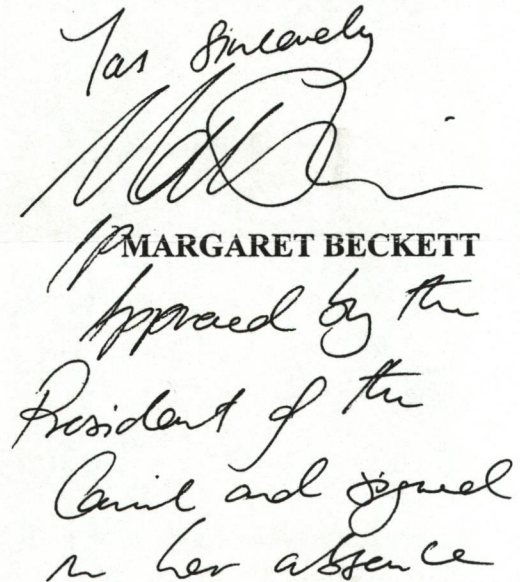 Yours Sincerely
pp MARGARET BECKETT
Approved by the
President of the
Council and signed
in her absence